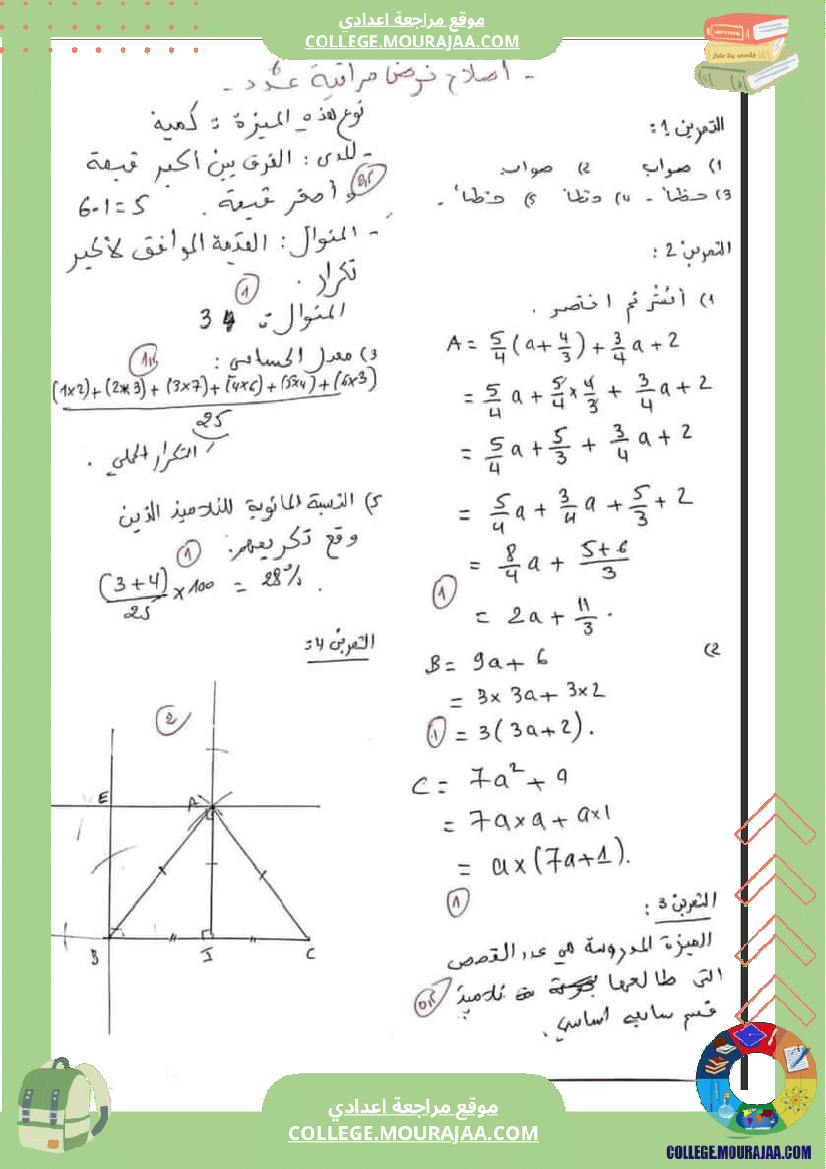 موقع مراجعة اعدادي
COLLEGE.MOURAJAA.COM
- اصلاح فرض مراقبة عـ6ـدد -
التمرين 1:
1) صواب 2) صواب
3) خطأ - 4) خطأ 5) خطأ.
التمرين 2:
1) أنشر ثم اختصر.
A = 5/4 (a + 4/3) + 3/4 a + 2
= 5/4 a + 5/4 × 4/3 + 3/4 a + 2
= 5/4 a + 5/3 + 3/4 a + 2
= 5/4 a + 3/4 a + 5/3 + 2
= 8/4 a + (5+6)/3
1
= 2a + 11/3 .
2)
B = 9a + 6
= 3 × 3a + 3 × 2
1 = 3(3a + 2).
C = 7a² + a
= 7a × a + a × 1
= a × (7a + 1).
1
التمرين 3:
الميزة المدروسة هي عدد القصص
التي طالعها تلاميذ
0,5
قسم سابعة أساسي.
نوع هذه الميزة: كمية
- المدى: الفرق بين أكبر قيمة
0,5
و أصغر قيمة. 6-1=5
- المنوال: القيمة الموافق لأكبر
تكرار.
1
المنوال: 3
3) معدل الحسابي:
(1×2)+(2×3)+(3×7)+(4×6)+(5×4)+(6×3)
25
التكرار الجملي.
5) النسبة المائوية للتلاميذ الذين
وقع تكريمهم: 1
(3+4)/25 × 100 = 28%.
التمرين 4:
2
E A
B I C
موقع مراجعة اعدادي
COLLEGE.MOURAJAA.COM
COLLEGE.MOURAJAA.COM